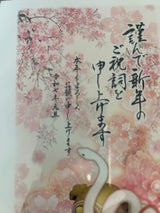 謹んで新年の
ご祝詞を
申し上げます
本年もよろしく
お願い申し上げます